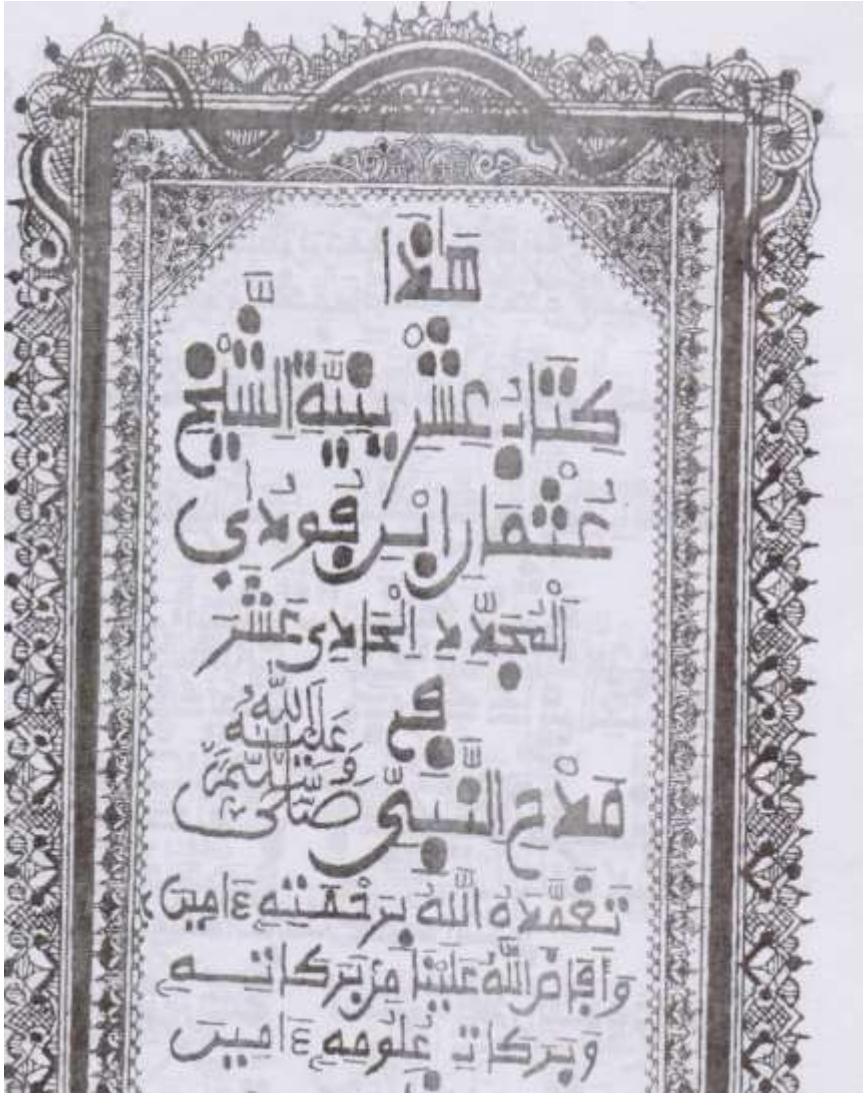 هذا
كتاب عشرينية الشيخ
عثمان ابن فودي
المجدد الحادي عشر
في
مدح النبي صلى الله عليه وسلم
تغمده الله برحمته ءامين
وأفاض الله علينا من بركاته
وبركات علومه ءامين